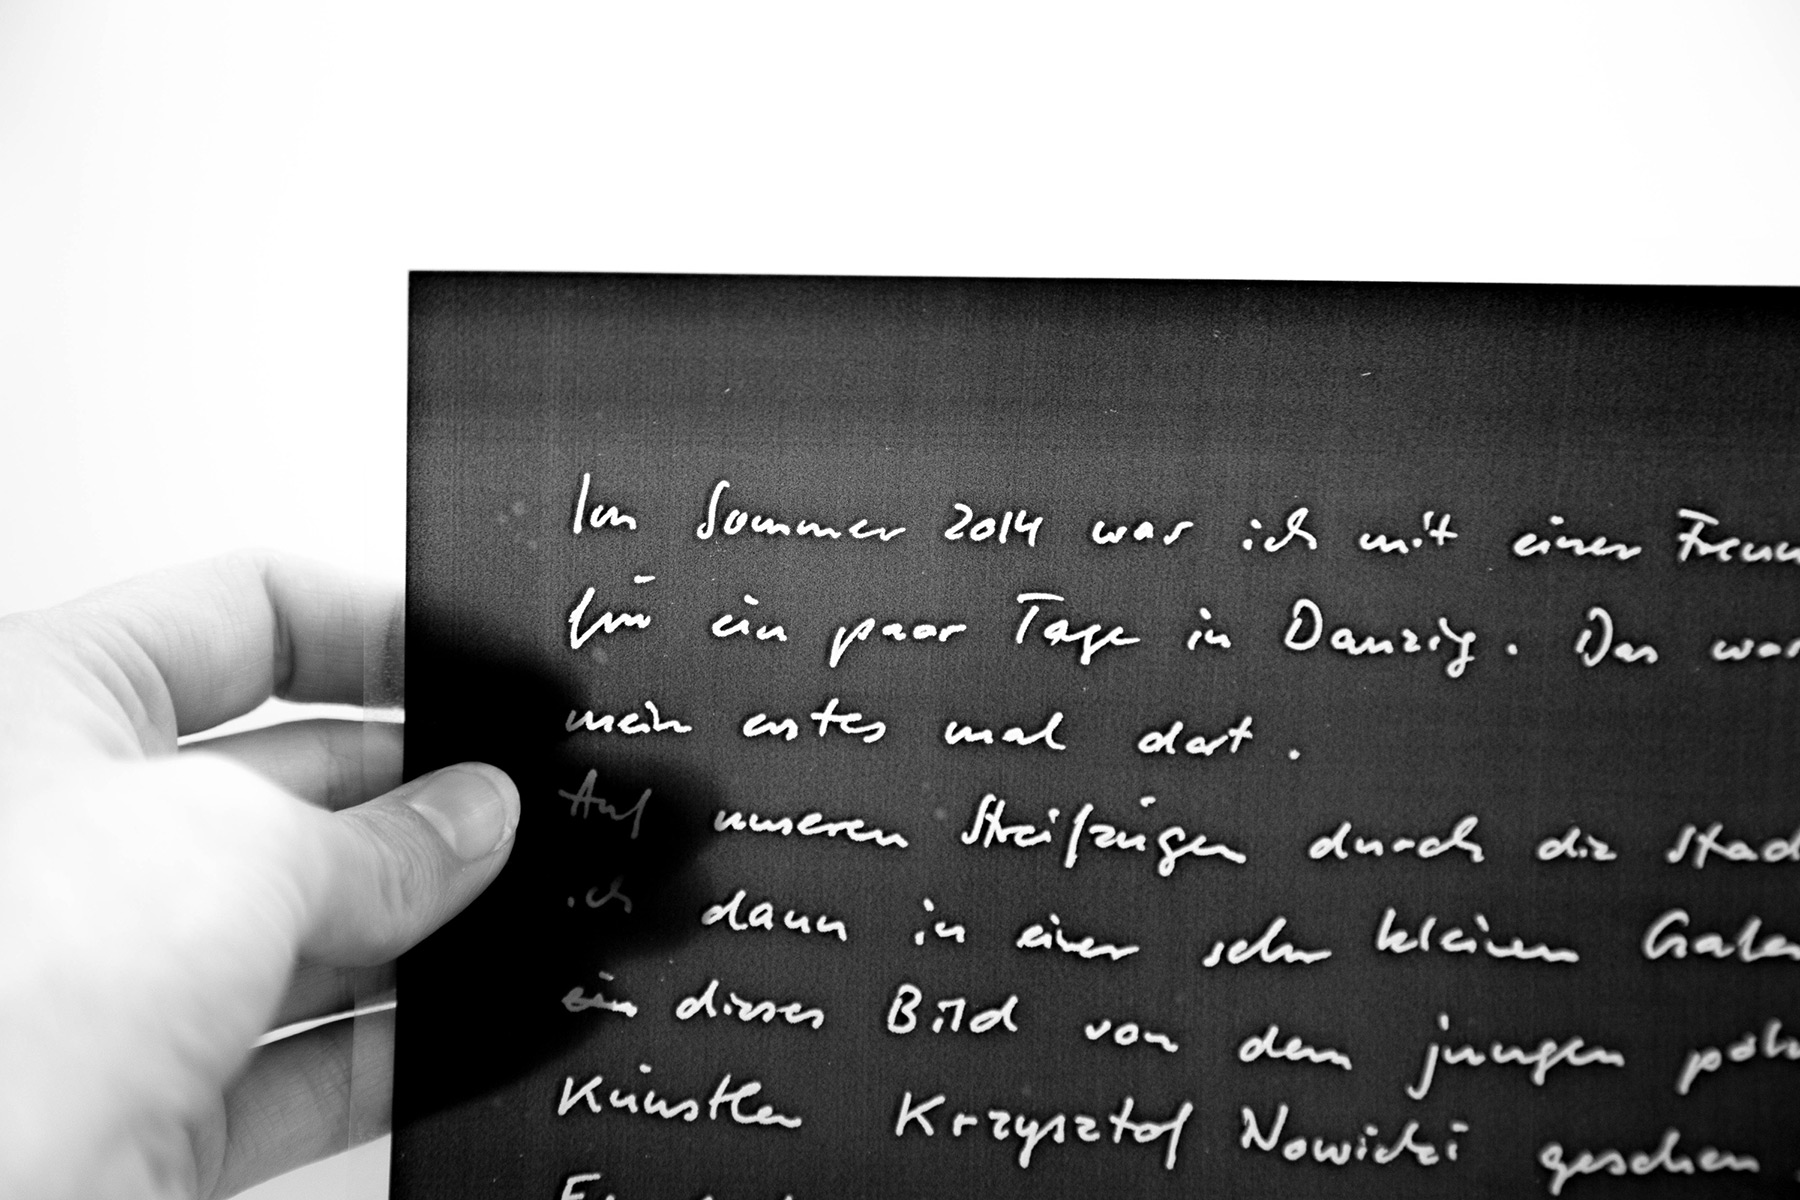 Im Sommer 2014 war ich mit einer Freun
für ein paar Tage in Danzig. Das war
mein erstes mal dort.
Auf unseren Streifzügen durch die Stad
ich dann in einer sehr kleinen Galer
ein dieses Bild von dem jungen poln
Künstler Krzysztof Nowicki gesehen.